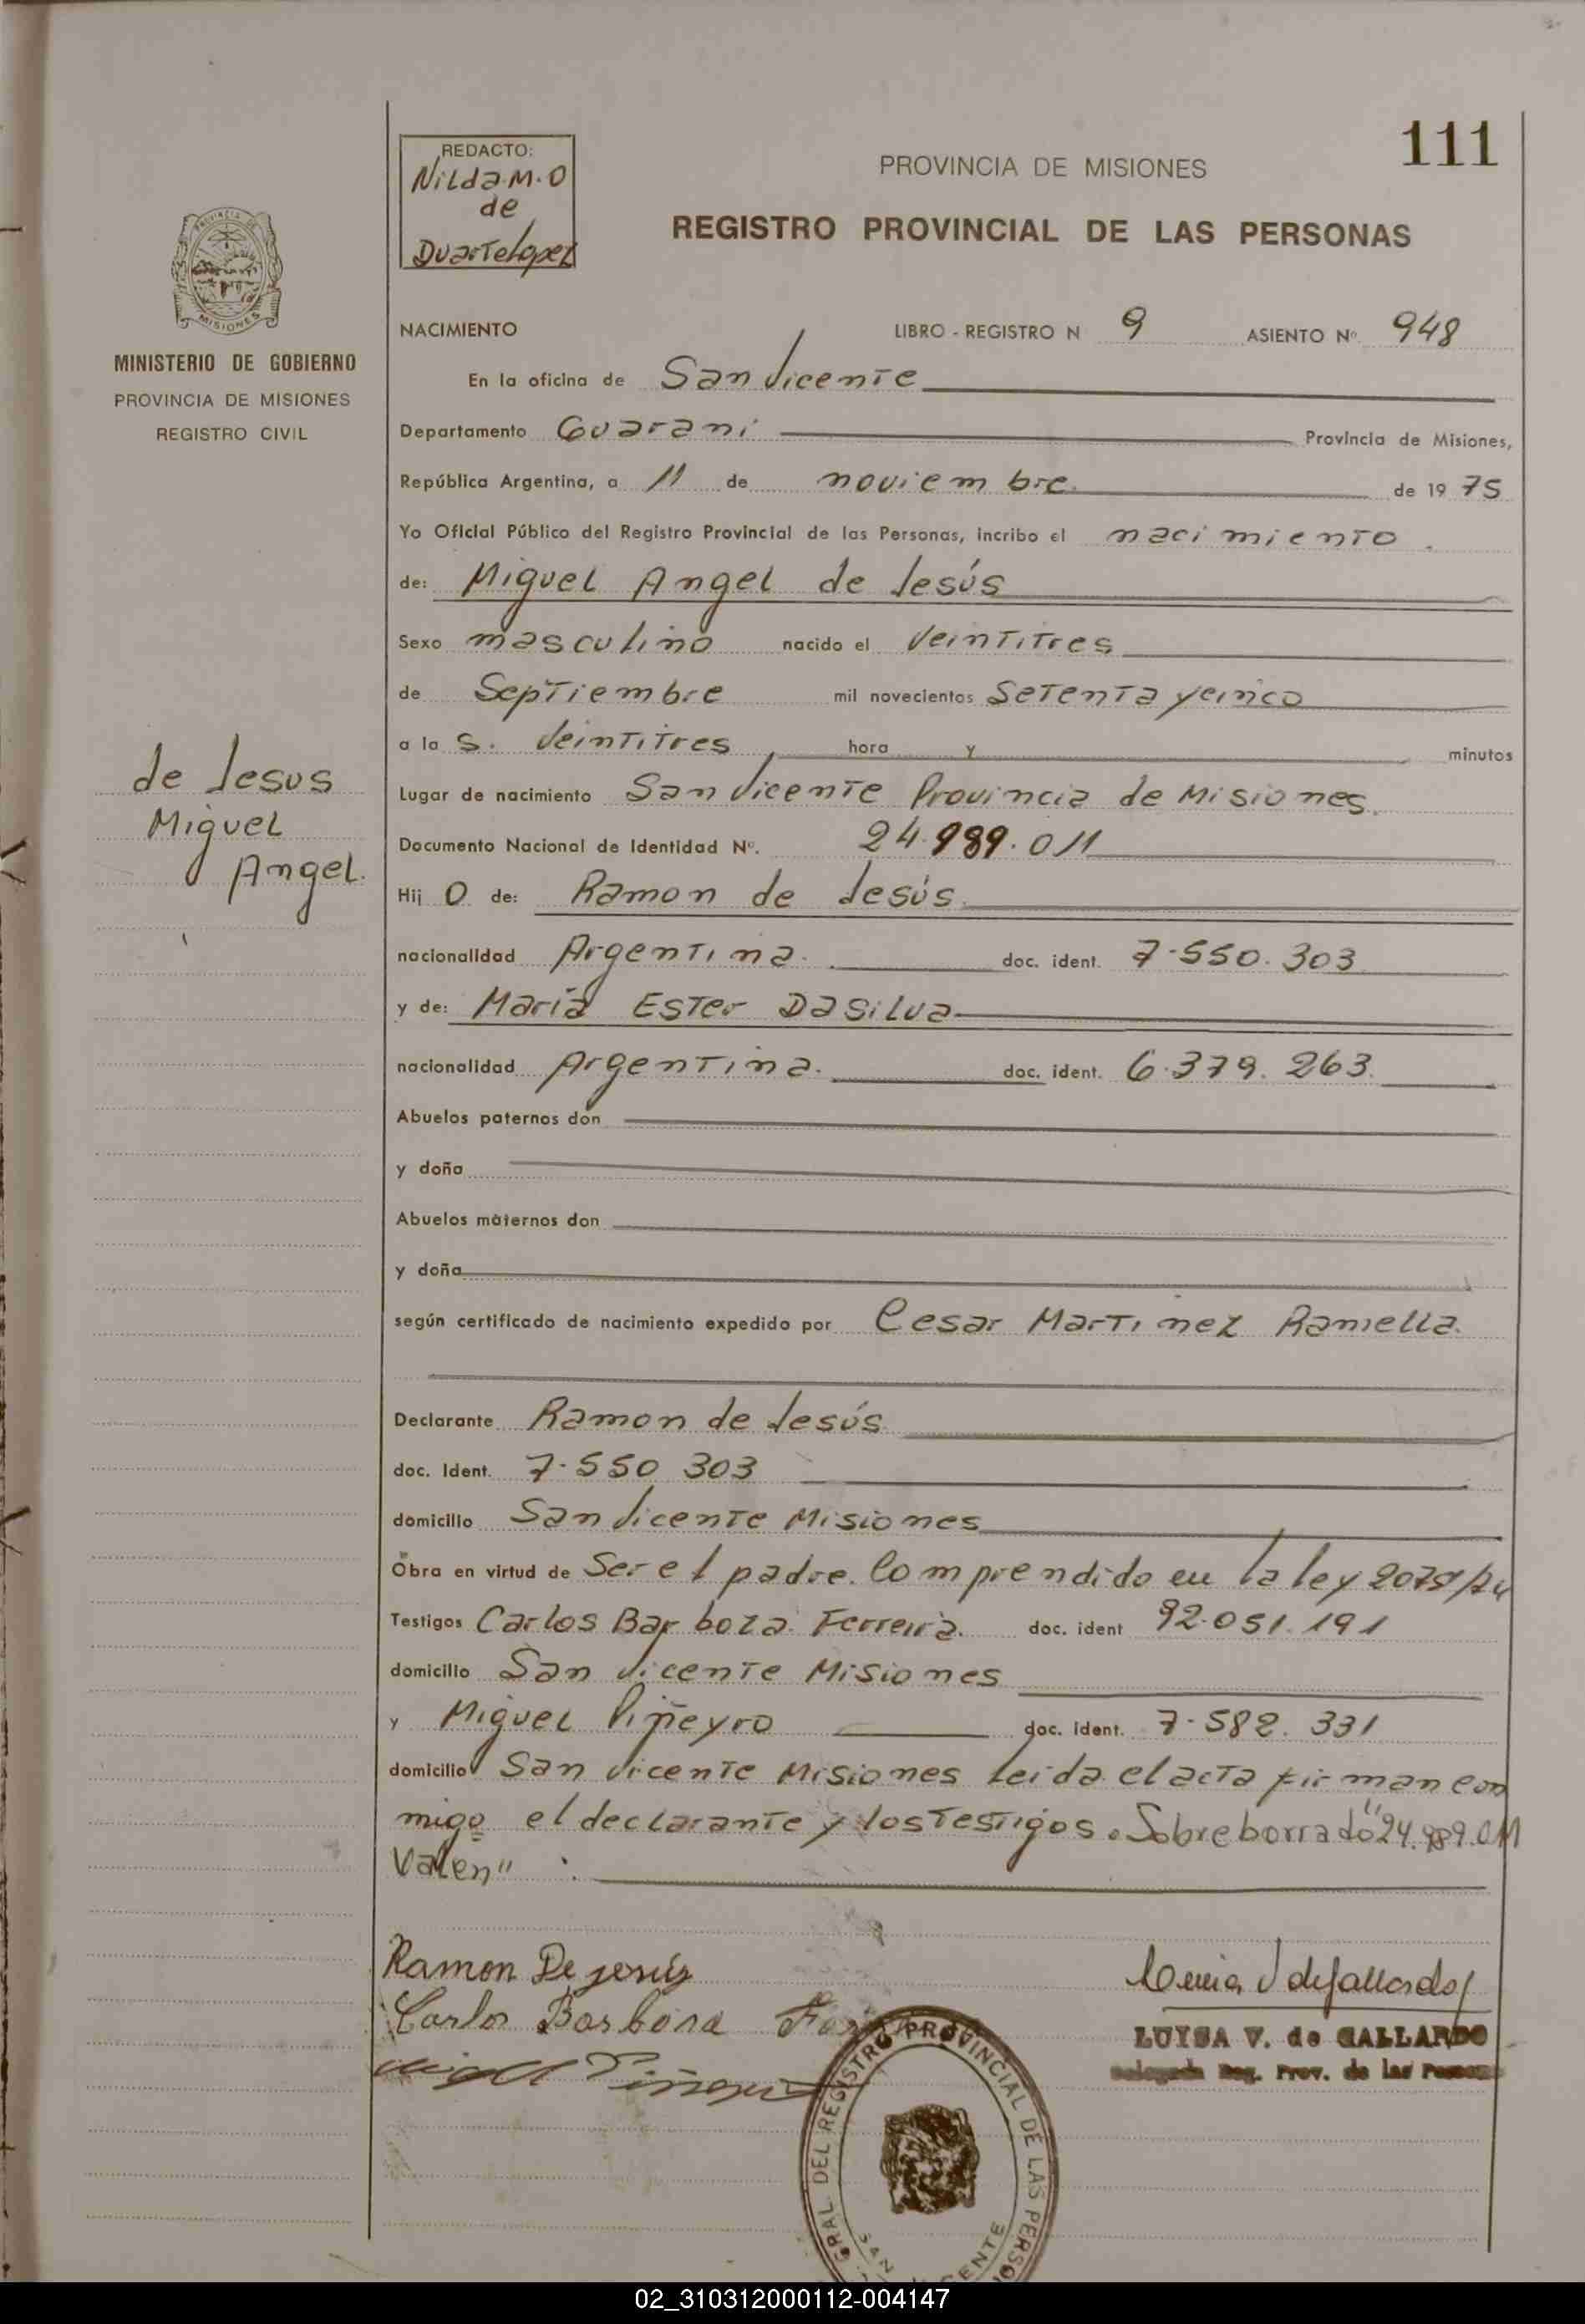 111
REDACTO:
Nilda M. O
de
Duarte Lopez
PROVINCIA DE MISIONES
REGISTRO PROVINCIAL DE LAS PERSONAS
MINISTERIO DE GOBIERNO
PROVINCIA DE MISIONES
REGISTRO CIVIL
de Jesus
Miguel
Angel.
NACIMIENTO LIBRO - REGISTRO N 9 ASIENTO Nº 948
En la oficina de San Vicente
Departamento Guarani Provincia de Misiones,
República Argentina, a 11 de noviembre. de 19 75
Yo Oficial Público del Registro Provincial de las Personas, incribo el nacimiento.
de: Miguel Angel de Jesús
Sexo masculino nacido el Veintitres
de Septiembre mil novecientos Setenta y cinco
a la s. Veintitres, hora y minutos
Lugar de nacimiento San Vicente Provincia de Misiones.
Documento Nacional de Identidad Nº. 24.989.011
Hij o de: Ramon de Jesús.
nacionalidad Argentina. doc. ident. 7.550.303
y de: María Ester Da Silva
nacionalidad Argentina. doc. ident. 6.379.263.
Abuelos paternos don
y doña
Abuelos maternos don
y doña
según certificado de nacimiento expedido por Cesar Martinez Ramella.
Declarante Ramon de Jesús
doc. Ident. 7.550 303
domicilio San Vicente Misiones
Obra en virtud de Ser el padre. Comprendido en la ley
Testigos Carlos Barboza Ferreira. doc. ident 92.051.191
domicilio San Vicente Misiones
y Miguel Piñeyro doc. ident. 7.582.331
domicilio San Vicente Misiones Leida el acta firman con
migo el declarante y los Testigos. Sobreborrado "24.989.011
Valen" .
Ramon De jesús
Carlos Barboza
LUYSA V. de GALLARDO
Delegada Reg. Prov. de las Personas
GRAL. DEL REGISTRO PROVINCIAL DE LAS PERSO
SAN CENTE
02_310312000112-004147